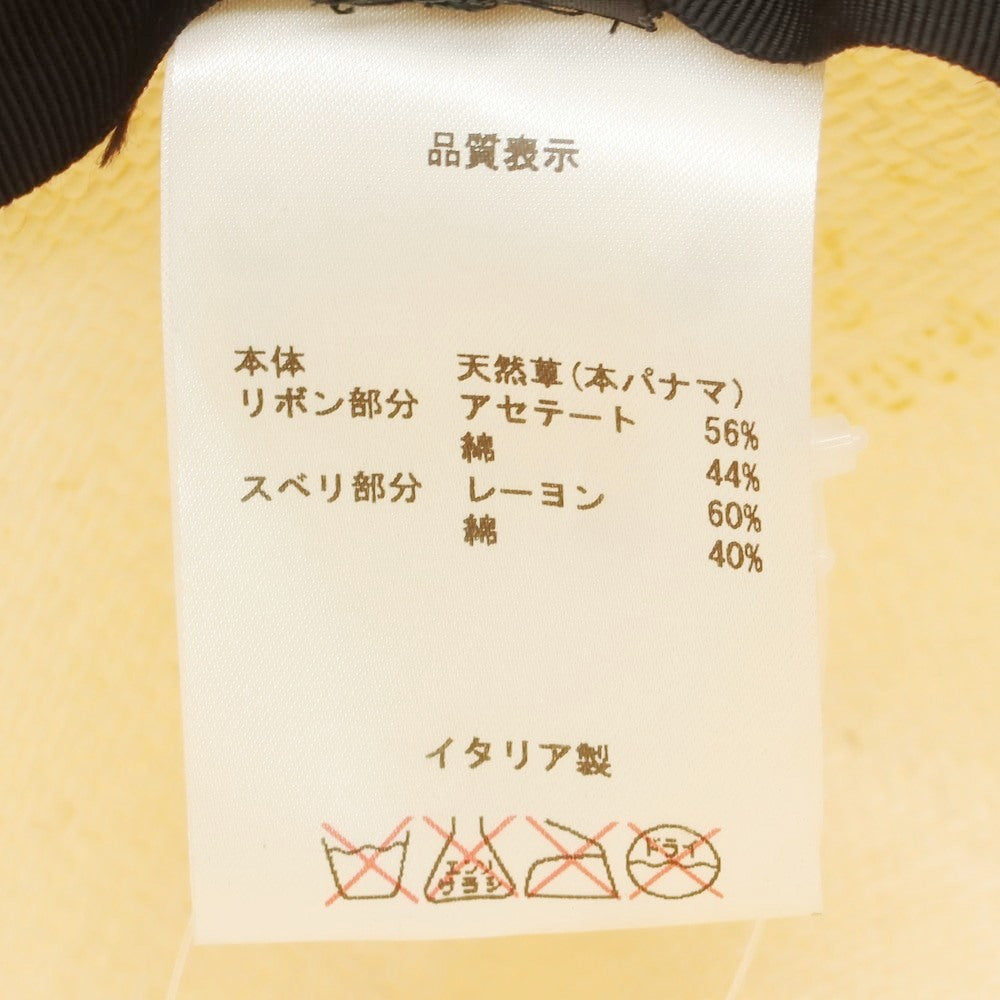 品質表示
本体 天然草(本パナマ)
リボン部分 アセテート 56%
綿 44%
スベリ部分 レーヨン 60%
綿 40%
イタリア製
エンソ サラシ ドライ